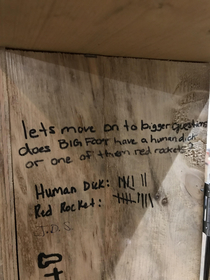 lets move on to bigger questions
does BIG FOOT have a human dick
or one of them red rockets?
Human Dick:
Red Rocket: